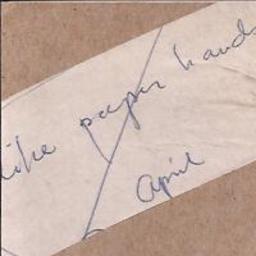 like paper hands
April